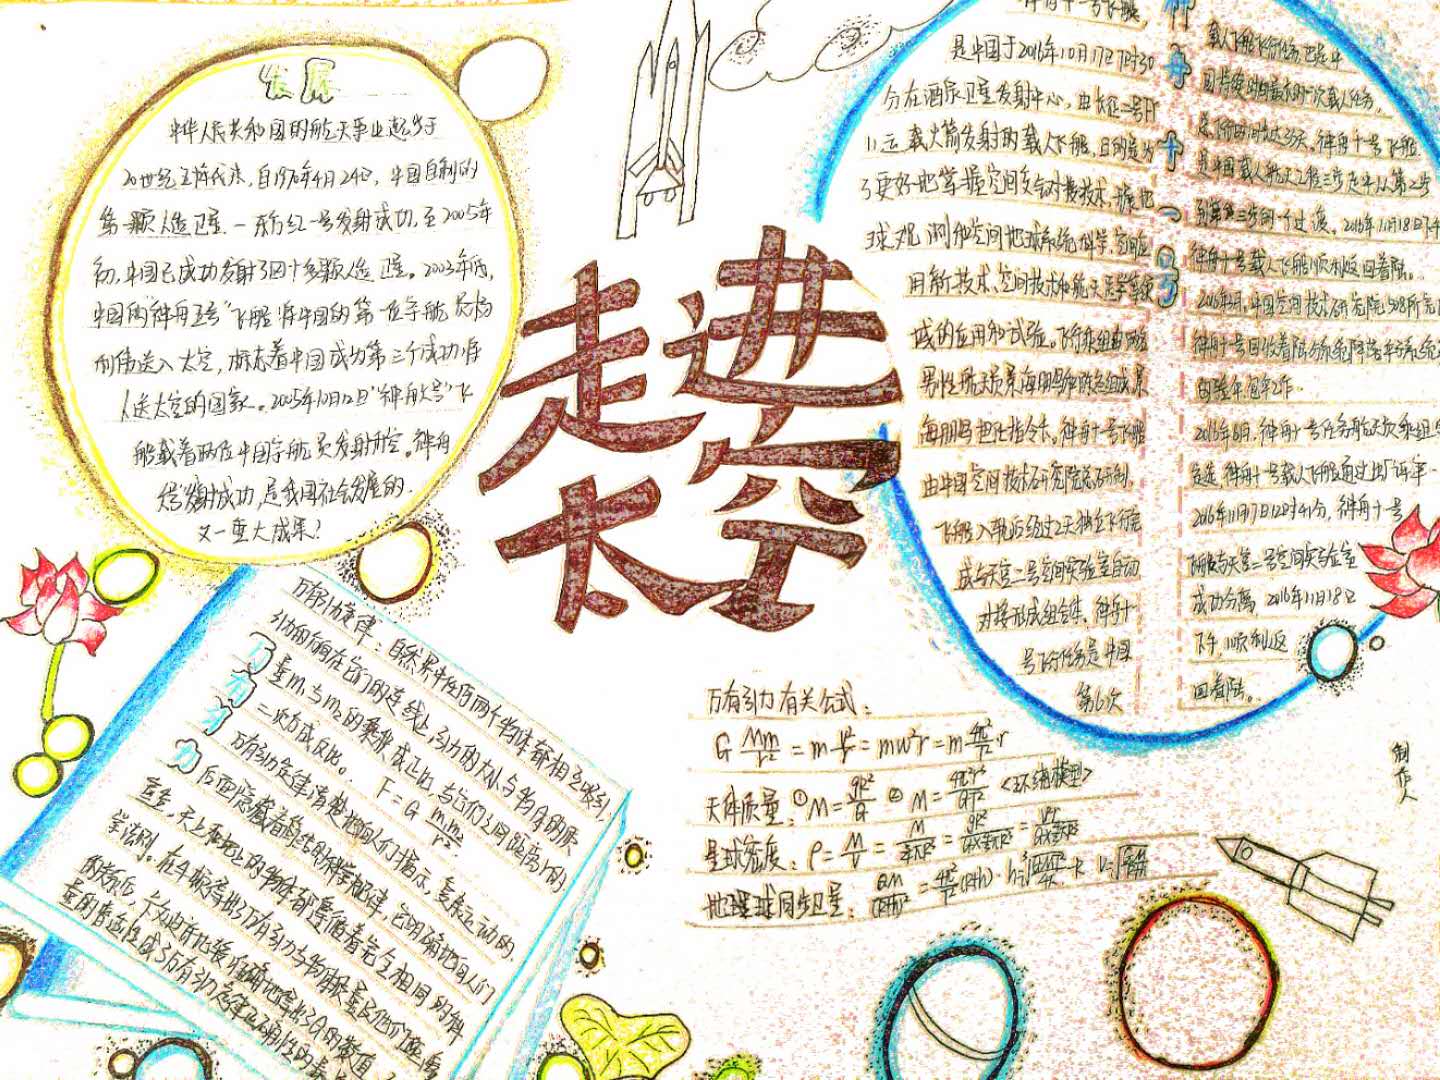 走进
太空
发展
中华人民共和国的航天事业起步于
20世纪五十年代末,自1970年4月24日,中国自制的
第一颗人造卫星一东方红一号发射成功,至2005年
初,中国已成功发射了四十多颗人造卫星。2003年底,
中国的"神舟五号"飞船将中国的第一位宇航员杨
利伟送入太空,标志着中国成为第三个成功将
人送太空的国家。2005年10月12日"神舟六号"飞
船载着两位中国宇航员发射升空。神舟
发射成功,是我国社会发展的
又一重大成果!
神舟十一号飞船
是中国于2016年10月17日7时30
分在酒泉卫星发射中心,由长征二号F
运载火箭发射的载人飞船,目的是为
了更好地掌握空间交会对接技术,开展地
球观测和空间地球系统科学、空间应
用新技术、空间技术和航天医学等领
域的应用和试验。飞行乘组由两名
男性航天员景海鹏和陈冬组成,景
海鹏担任指令长。神舟十一号飞船
由中国空间技术研究院总研制,
飞船入轨后经过2天独立飞行完
成与天宫二号空间实验室自动
对接形成组合体。神舟十一
号飞行任务是中国
第6次
神舟十一号
载人飞行任务,也是中
国持续时间最长的一次载人任务,
总飞行时间长达33天。神舟十一号飞船
是中国载人航天工程三步走中从第二步
到第三步的一个过渡。2016年11月18日下午
神舟十一号载人飞船顺利返回着陆。
2016年 中国空间技术研究院508所完
神舟十一号回收着陆分系统降落伞分系统
包伞工作。
2016年8月,神舟十一号任务航天员乘组
选定 神舟十一号载人飞船通过出厂评审
2016年11月17日12时41分,神舟十一号
飞船与天宫二号空间实验室
成功分离 2016年11月18日
下午,顺利返
回着陆。
万有引力
万有引力定律:自然界中任何两个物体都相互吸引,
引力的方向在它们的连线上,引力的大小与物体的质
量m₁与m₂的乘积成正比,与它们之间距离r的
二次方成反比。 F=G m₁m₂/r²
万有引力定律清楚地向人们揭示,复杂运动的
后面隐藏着简洁的科学规律,它明确地向人们
宣告,天上和地上的物体都遵循着完全相同的科
学法则。
万有引力有关公式:
G Mm/r² = m v²/r = mω²r = m 4π²/T² r
天体质量:①M= gR²/G ② M= 4π²r³/GT² <环绕模型>
星球密度:ρ= M/V
地球同步卫星:
制作人